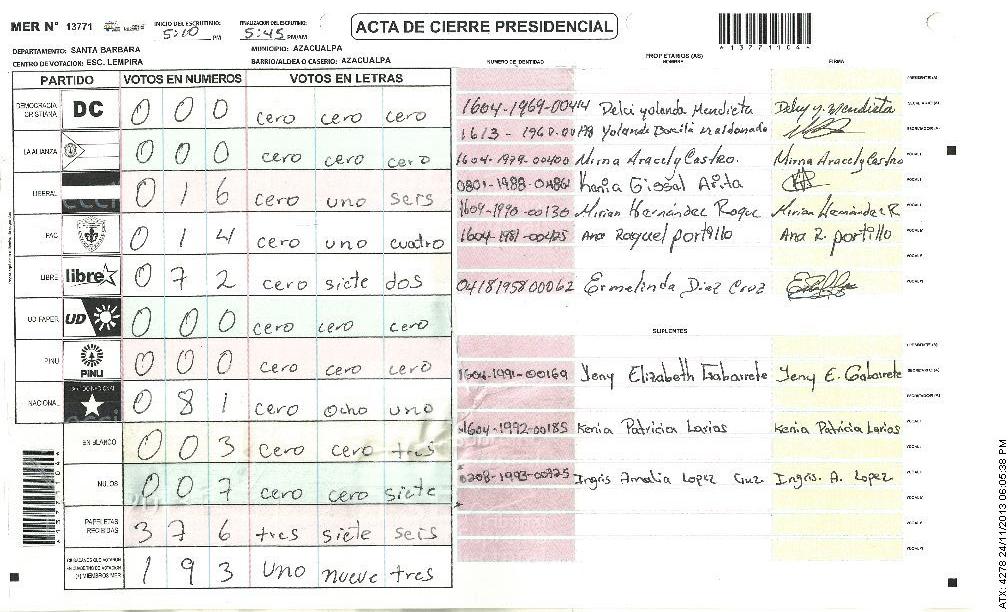 MER N° 13771
INICIO DEL ESCRUTINIO: 5:00 PM
FINALIZACION DEL ESCRUTINIO: 5:45 PM/AM
ACTA DE CIERRE PRESIDENCIAL
DEPARTAMENTO: SANTA BARBARA
MUNICIPIO: AZACUALPA
CENTRO DE VOTACION: ESC. LEMPIRA
BARRIO/ALDEA O CASERIO: AZACUALPA
PARTIDO VOTOS EN NUMEROS VOTOS EN LETRAS
DEMOCRACIA CRISTIANA DC 0 0 0 cero cero cero
LA ALIANZA 0 0 0 cero cero cero
LIBERAL 0 1 6 cero uno seis
PAC 0 1 4 cero uno cuatro
LIBRE libre 0 7 2 cero siete dos
UD FAPER UD 0 0 0 cero cero cero
PINU PINU 0 0 0 cero cero cero
NACIONAL 0 8 1 cero ocho uno
EN BLANCO 0 0 3 cero cero tres
NULOS 0 0 7 cero cero siete
PAPELETAS RECIBIDAS 3 7 6 tres siete seis
CIUDADANOS QUE VOTARON
MIEMBROS MER 1 9 3 uno nueve tres
NUMERO DE IDENTIDAD PROPIETARIOS (AS) NOMBRE FIRMA
PRESIDENTE (A)
1604-1969-00414 Delci yolanda Mendieta Delcy y. Mendieta
1613-1968- Yolanda maldonado
1604-1979-00400 Mirna Aracely Castro. Mirna Aracely Castro
0801-1988- Kenia Gissal Arita
1604-1990-00130 Mirian Hernández Roque Mirian Hernández R
1604-1981-00425 Ana Raquel portillo Ana R. portillo
0418195800062 Ermelinda Diaz Cruz
SUPLENTES
1604-1991-00169 Yeny Elizabeth Gabarrete Yeny E. Gabarrete
1604-1992-00185 Kenia Patricia Larios Kenia Patricia Larios
0208-1993-00325 Ingris Amalia Lopez Cruz Ingris. A. Lopez
ATX: 4278 24/11/2013 06:05:38 PM